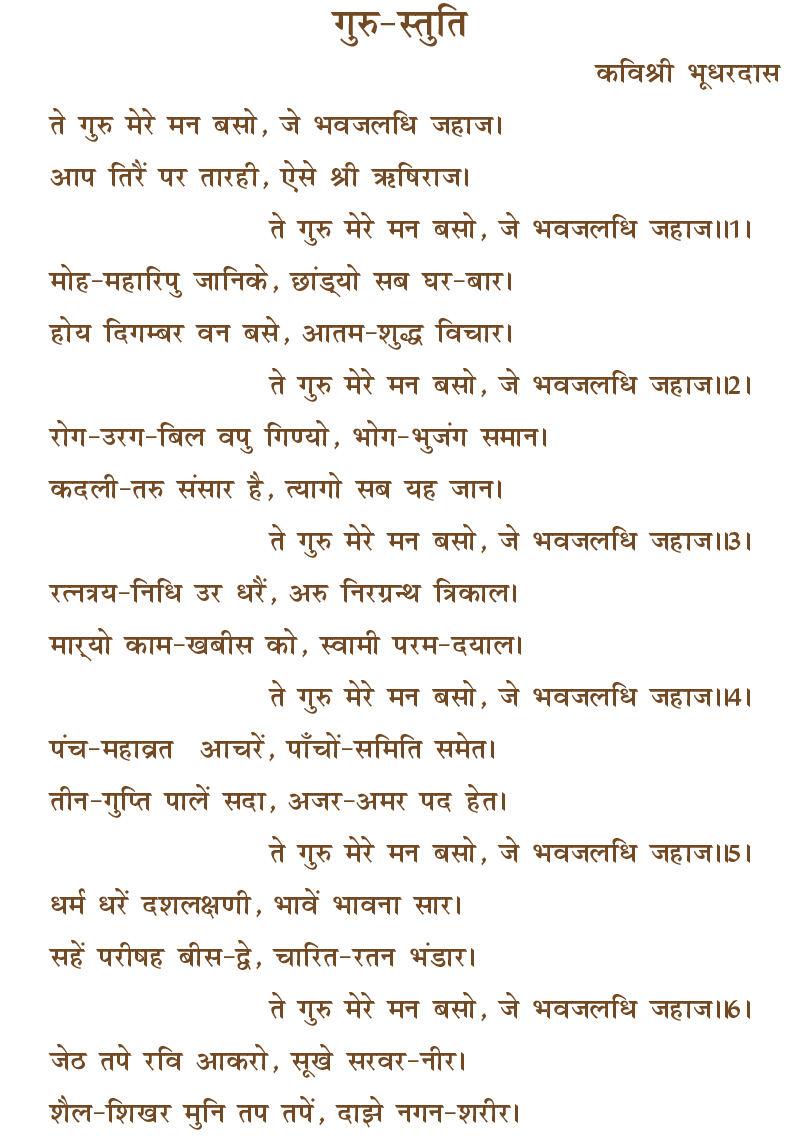 गुरु-स्तुति
कविश्री भूधरदास
ते गुरु मेरे मन बसो, जे भवजलधि जहाज।
आप तिरैं पर तारही, ऐसे श्री ऋषिराज।
ते गुरु मेरे मन बसो, जे भवजलधि जहाज॥1।
मोह-महारिपु जानिके, छांड्यो सब घर-बार।
होय दिगम्बर वन बसे, आतम-शुद्ध विचार।
ते गुरु मेरे मन बसो, जे भवजलधि जहाज॥2।
रोग-उरग-बिल वपु गिण्यो, भोग-भुजंग समान।
कदली-तरु संसार है, त्यागो सब यह जान।
ते गुरु मेरे मन बसो, जे भवजलधि जहाज॥3।
रत्नत्रय-निधि उर धरैं, अरु निरग्रन्थ त्रिकाल।
मार्‌यो काम-खबीस को, स्वामी परम-दयाल।
ते गुरु मेरे मन बसो, जे भवजलधि जहाज॥4।
पंच-महाव्रत आचरें, पाँचों-समिति समेत।
तीन-गुप्ति पालें सदा, अजर-अमर पद हेत।
ते गुरु मेरे मन बसो, जे भवजलधि जहाज॥5।
धर्म धरें दशलक्षणी, भावें भावना सार।
सहें परीषह बीस-द्वे, चारित-रतन भंडार।
ते गुरु मेरे मन बसो, जे भवजलधि जहाज॥6।
जेठ तपे रवि आकरो, सूखे सरवर-नीर।
शैल-शिखर मुनि तप तपें, दाझे नगन-शरीर।